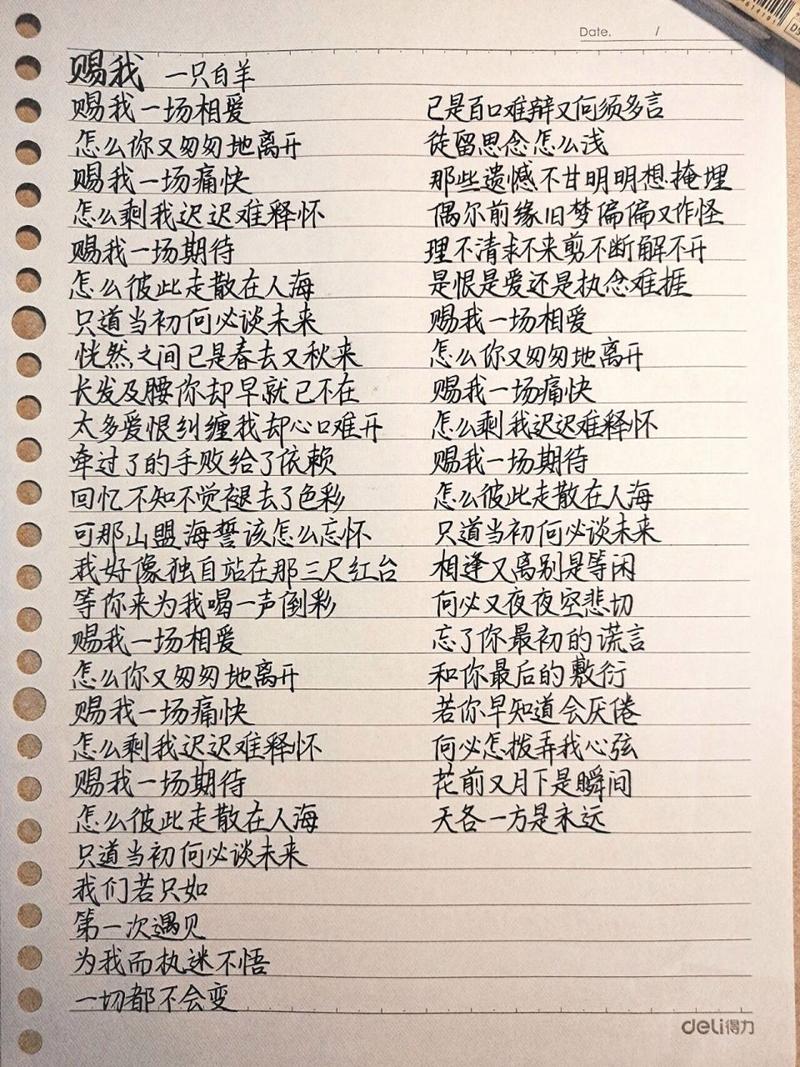 Date. /
赐我 一只白羊
赐我一场相爱
怎么你又匆匆地离开
赐我一场痛快
怎么剩我迟迟难释怀
赐我一场期待
怎么彼此走散在人海
只道当初何必谈未来
恍然之间已是春去又秋来
长发及腰你却早就已不在
太多爱恨纠缠我却心口难开
牵过了的手败给了依赖
回忆不知不觉褪去了色彩
可那山盟海誓该怎么忘怀
我好像独自站在那三尺红台
等你来为我喝一声倒彩
赐我一场相爱
怎么你又匆匆地离开
赐我一场痛快
怎么剩我迟迟难释怀
赐我一场期待
怎么彼此走散在人海
只道当初何必谈未来
我们若只如
第一次遇见
为我而执迷不悟
一切都不会变
已是百口难辩又何须多言
徒留思念怎么浅
那些遗憾不甘明明想掩埋
偶尔前缘旧梦偏偏又作怪
理不清求不来剪不断解不开
是恨是爱还是执念难捱
赐我一场相爱
怎么你又匆匆地离开
赐我一场痛快
怎么剩我迟迟难释怀
赐我一场期待
怎么彼此走散在人海
只道当初何必谈未来
相逢又离别是等闲
何必又夜夜空悲切
忘了你最初的谎言
和你最后的敷衍
若你早知道会厌倦
何必怎拨弄我心弦
花前又月下是瞬间
天各一方是永远
deli得力